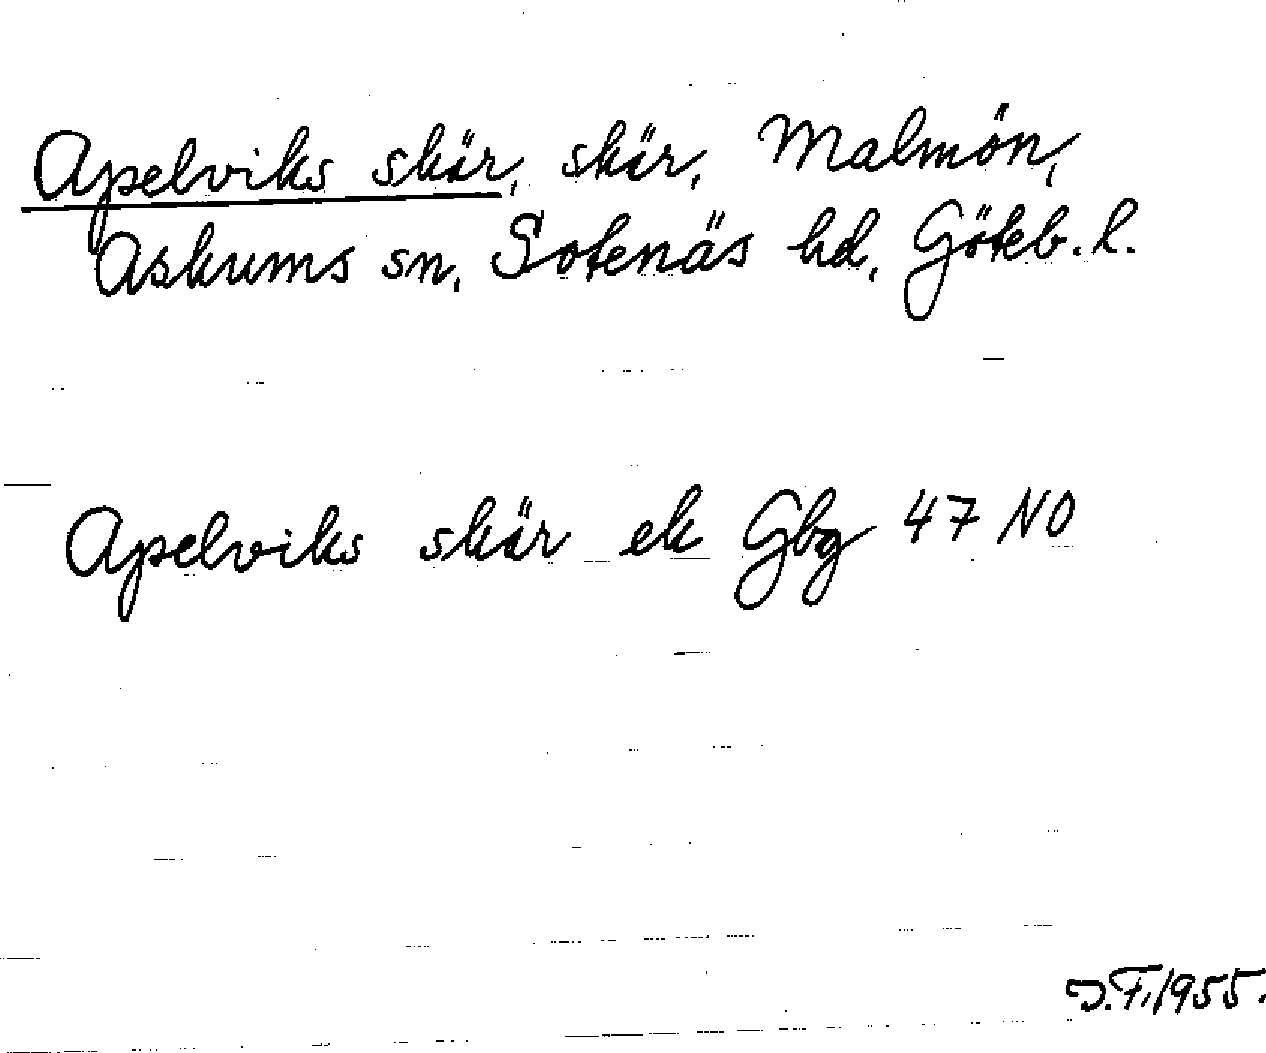 Apelviks skär, skär, Malmön,
Askums sn, Sotenäs hd, Göteb. l.
Apelviks skär ek Gbg 47 NO
J.F. 1955.